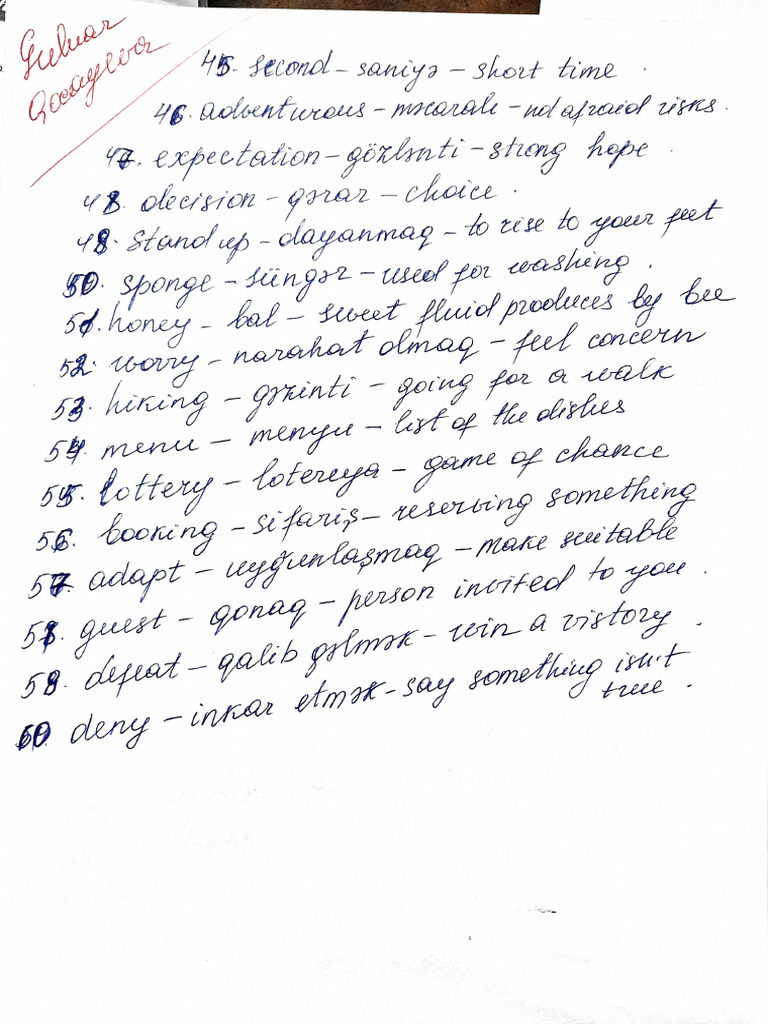 Gulnar
Qocayeva
45. second – saniyə – short time.
46. adventurous – macəralı – not afraid risks.
47. expectation – gözlənti – strong hope.
48. decision – qərar – choice.
49. stand up – dayanmaq – to rise to your feet
50. sponge – süngər – used for washing.
51. honey – bal – sweet fluid produces by bee
52. worry – narahat olmaq – feel concern
53. hiking – gəzinti – going for a walk
54. menu – menyu – list of the dishes
55. lottery – lotereya – game of chance
56. booking – sifariş – reserving something
57. adapt – uyğunlaşmaq – make suitable
58. guest – qonaq – person invited to you.
59. defeat – qalib gəlmək – win a vistory.
60 deny – inkar etmək – say something isn't
true.